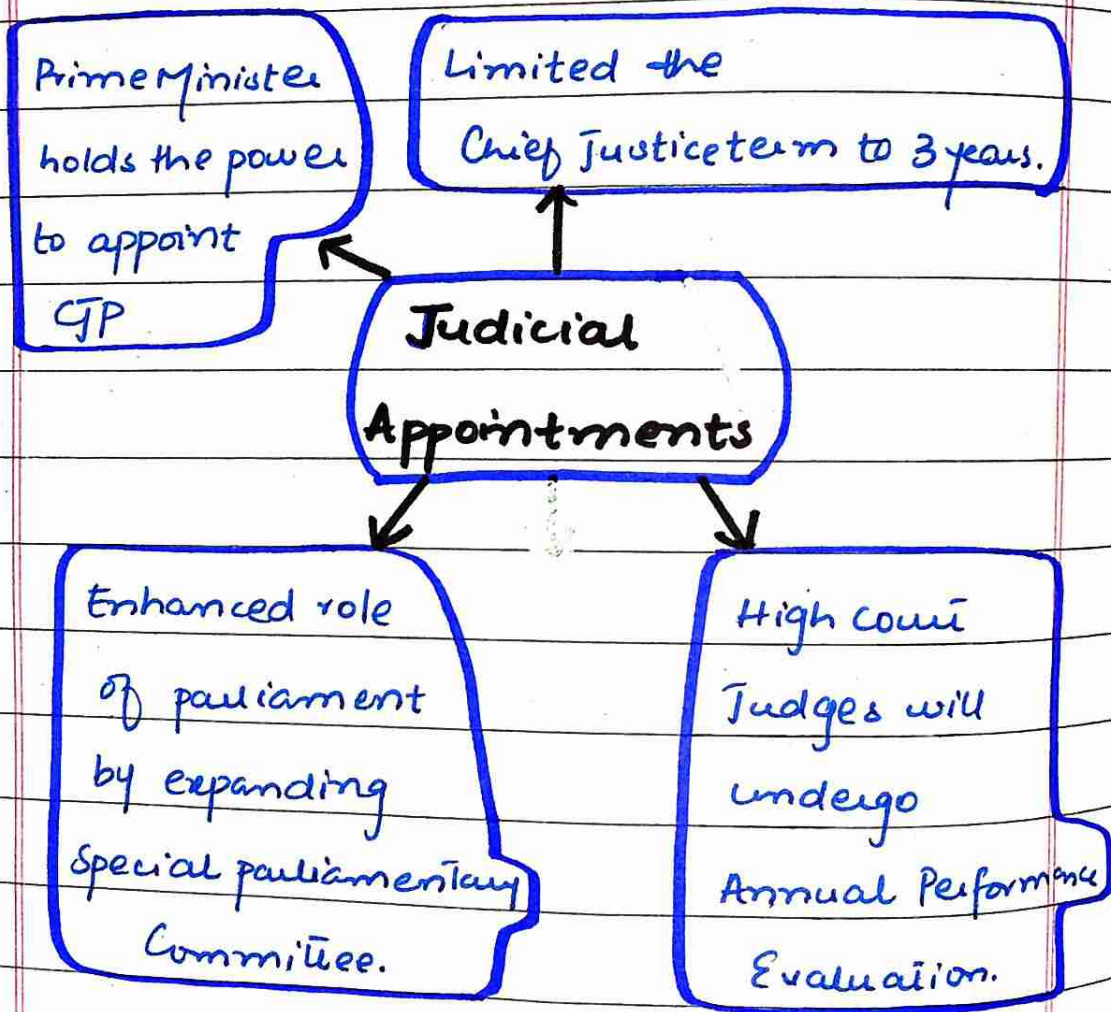 Prime Minister
holds the power
to appoint
CJP
Limited the
Chief Justice term to 3 years.
Judicial
Appointments
Enhanced role
of parliament
by expanding
Special parliamentary
Committee.
High court
Judges will
undergo
Annual Performance
Evaluation.